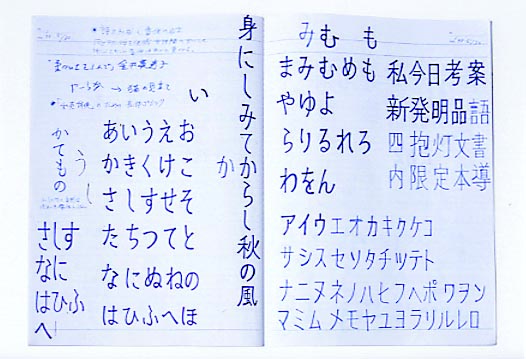 身にしみてからし秋の風
か
い
あいうえお
かきくけこ
さしすせそ
たちつてと
なにぬねの
はひふへほ
かてもの
うし
さしす
なに
はひふ
へ
みむ も
まみむめも
やゆよ
らりるれろ
わをん
私今日考案
新発明品語
四抱灯文書
内限定本導
アイウエオカキクケコ
サシスセソタチツテト
ナニヌネノハヒフヘポ ワヲン
マミムメモヤユヨラリルレロ